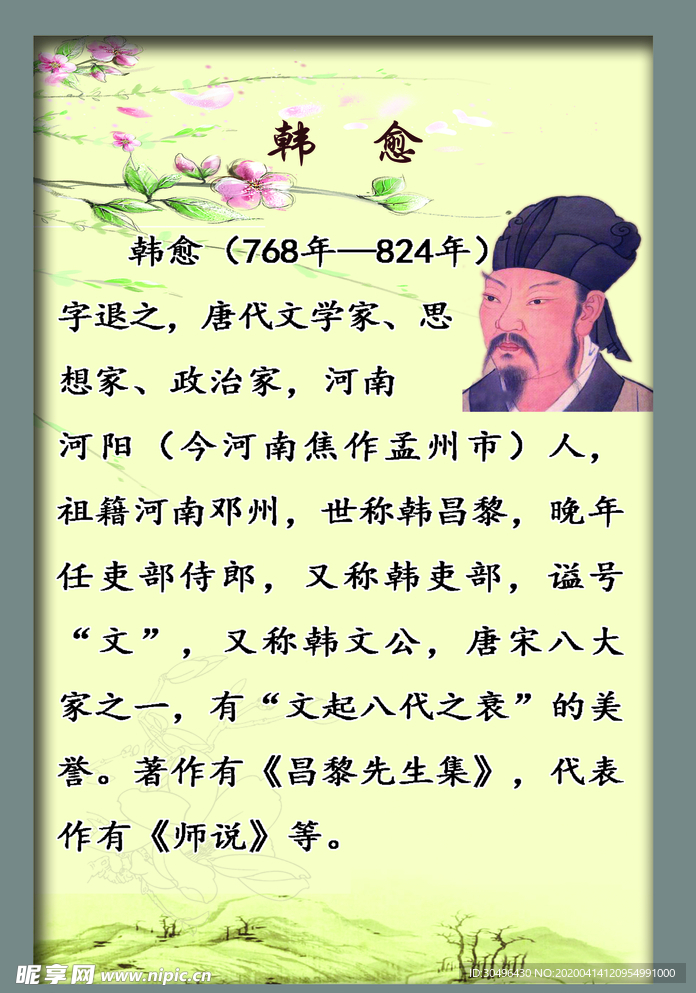 韩 愈
韩愈（768年—824年）
字退之，唐代文学家、思
想家、政治家，河南
河阳（今河南焦作孟州市）人，
祖籍河南邓州，世称韩昌黎，晚年
任吏部侍郎，又称韩吏部，谥号
“文”，又称韩文公，唐宋八大
家之一，有“文起八代之衰”的美
誉。著作有《昌黎先生集》，代表
作有《师说》等。
昵享网 www.nipic.cn
ID:30496430 NO:20200414120954991000